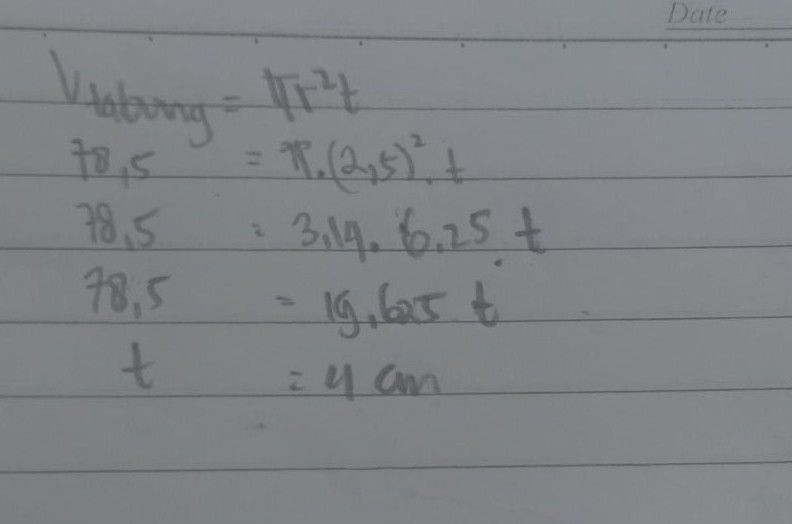 Date
V tabung = πr²t
78,5 = π.(2,5)². t
78,5 = 3,14. 6.25 t
78,5 = 19,625 t
t = 4 cm